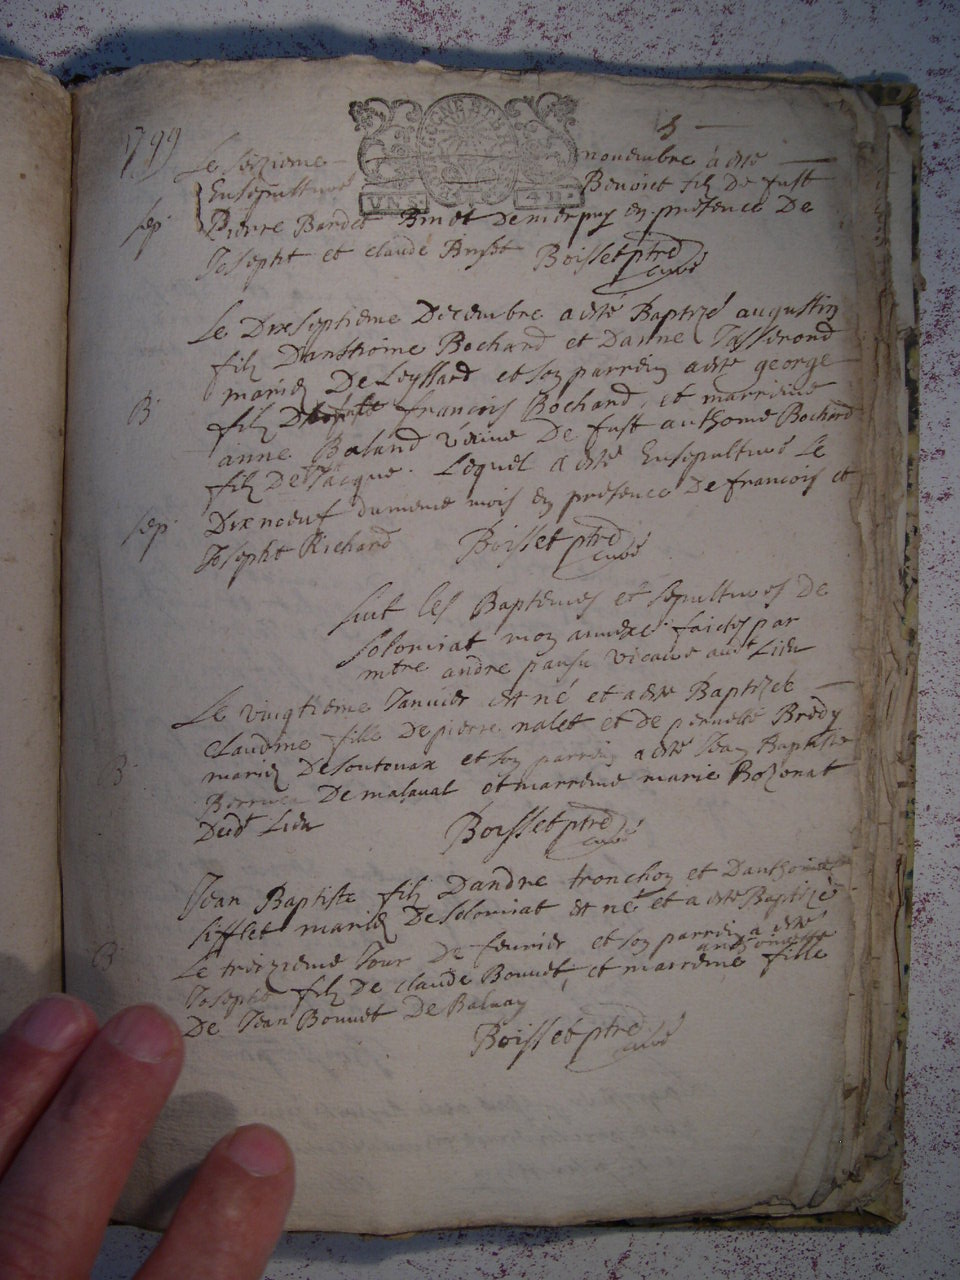 1799
5
GOGNE ET
VNS 4 D.
Le seizieme novembre a esté
Ensepulturé Benoict filz De fust
sep. Pierre Bardet Binet De merpuy en presence De
Josepht et claude Boisset ptre
curé
Le Dixseptieme Decembre a esté Baptizé augustin
filz Danthoine Bochard et Danne Tasserond
mariez De Leyssard et son parrein a esté george
B. filz francois Bochard, et marreine
anne Baland vefve De fust anthoine Bochard
filz De Jacque. Lequel a esté Ensepulturé Le
sep. Dix noeuf du meme mois en presence De francois et
Josepht Richard Boisset ptre
curé
suit les Baptemes et sepultures de
Solomiat mon annexe faictes par
mtre andre vicaire audt Lieu
Le vingtieme Janvier est né et a esté Baptizée
claudine fille De pierre nalet et de pernette Brody
B. mariez De soutouax et son parrein a esté Jean Baptiste
De malaval et marreine marie Bozonat
Dudt Lieu Boisset ptre
curé
Jean Baptiste filz Dandre tronchon et Danthoinette
sifflet mariez De Solomiat est né et a esté Baptizé
B. Le treizieme Jour De fevrier et son parrein a esté
anthoinette
Josepht filz De claude Bouvet, et marreine fille
De Jean Bouvet De Balvay
Boisset ptre
curé